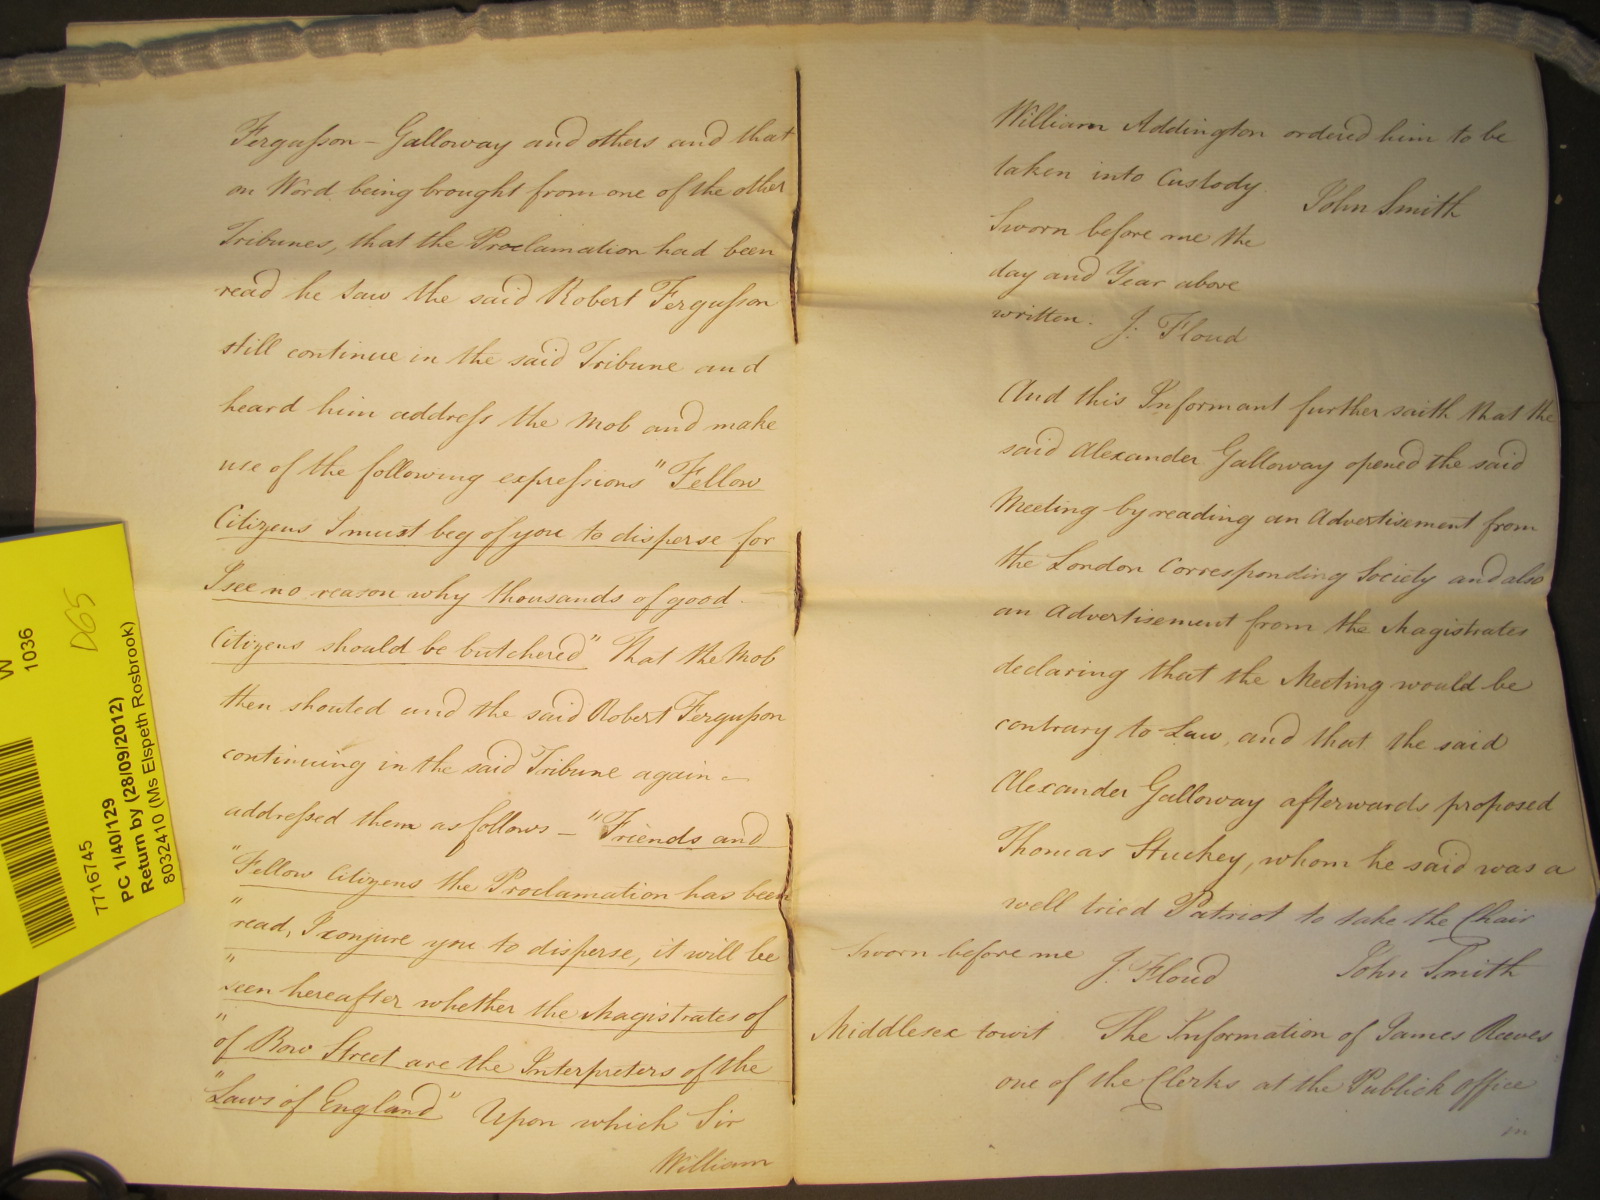 Fergusson – Galloway and others and that
on Word being brought from one of the other
Tribunes, that the Proclamation had been
read he saw the said Robert Fergusson
still continue in the said Tribune and
heard him address the Mob and make
use of the following expressions "Fellow
Citizens I must beg of you to disperse for
I see no reason why thousands of good
Citizens should be butchered" That the Mob
then shouted and the said Robert Fergusson
continuing in the said Tribune again
addressed them as follows – "Friends and
"Fellow Citizens the Proclamation has been
"read, I conjure you to disperse, it will be
"seen hereafter whether the Magistrates of
"of Bow Street are the Interpreters of the
"Laws of England" Upon which Sir
William
William Addington ordered him to be
taken into Custody.
John Smith
Sworn before me the
day and Year above
written. J. Floud
And this Informant further saith that the
said Alexander Galloway opened the said
Meeting by reading an Advertisement from
the London Corresponding Society and also
an Advertisement from the Magistrates
declaring that the Meeting would be
contrary to Law, and that the said
Alexander Galloway afterwards proposed
Thomas Stuckey, whom he said was a
well tried Patriot to take the Chair
Sworn before me J. Floud John Smith
Middlesex towit The Information of James Reeves
one of the Clerks at the Publick Office
in
W
1036
D65
7716745
PC 1/40/129
Return by (28/09/2012)
8032410 (Ms Elspeth Rosbrook)